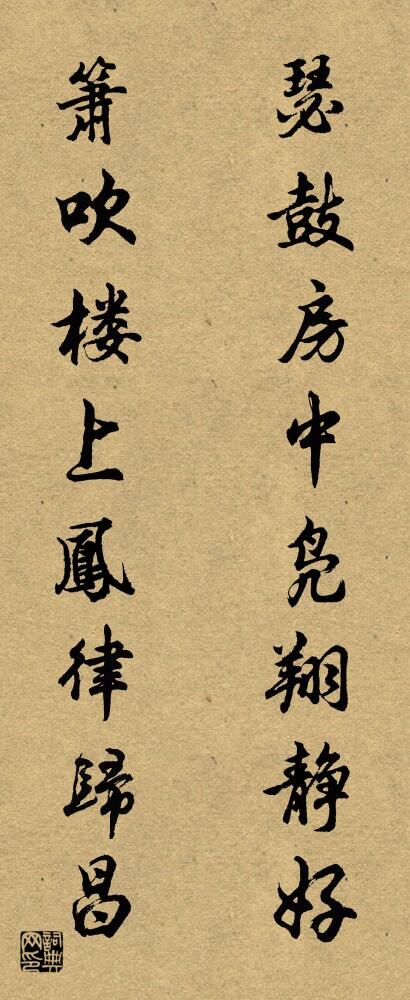 瑟鼓房中凫翔静好
箫吹楼上鳳律歸昌
詞典网印